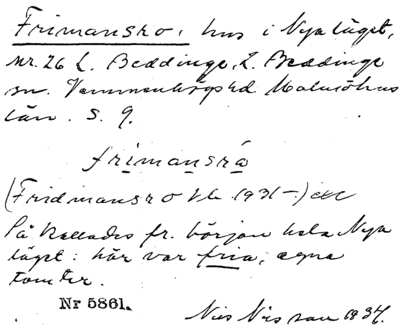 Frimansro, hus i Nya läget,
nr. 26 L. Beddinge, L. Beddinge
sn. Vemmenhögs hd Malmöhus
län. S. 9.
frimansrå
(Fridmansro 1931-)
Så kallades fr. början hela Nya
läget: här var fria, egna
tomter.
Nr 5861.
Nils Nilsson 1934.